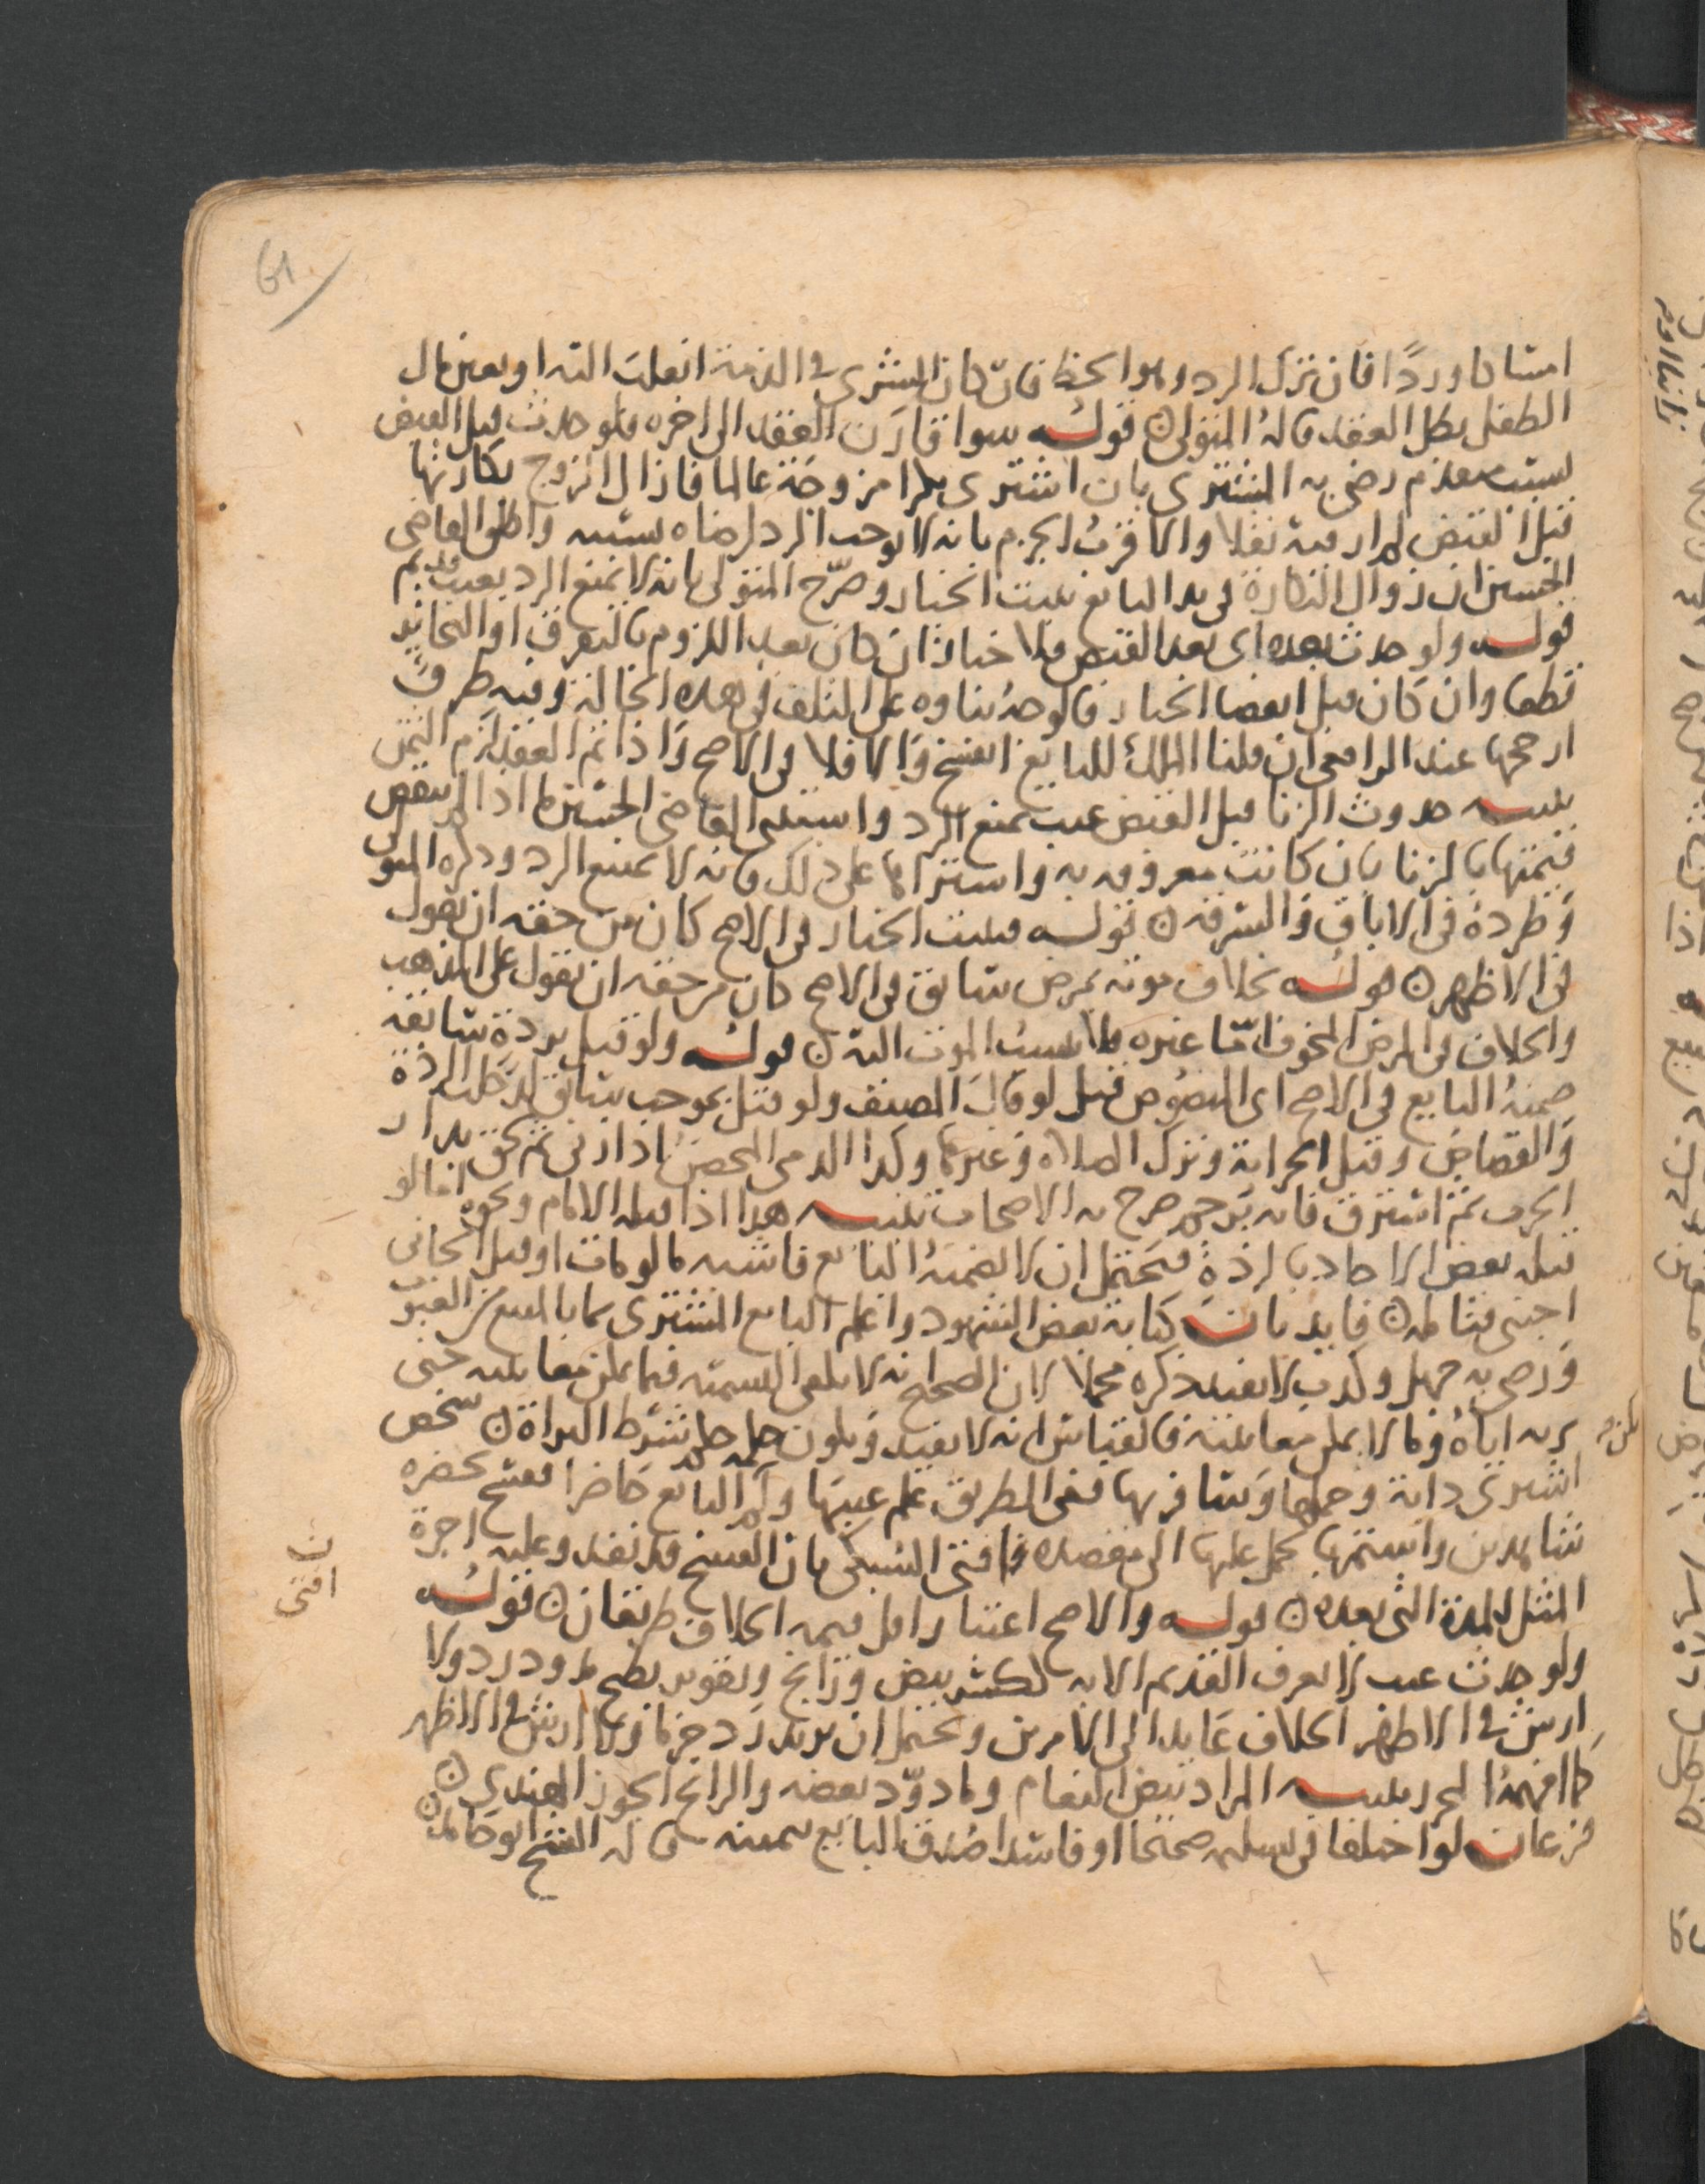 61
امسا كا وردا فان ترك الرد وهو الحظ فان كان المشترى فى الذمة انقلب اليه او بعين مال
الطفل بطل العقد قاله المتولى ۞ قوله سوا قارن العقد الى اخره فلو حدث قبل القبض
بسبب متقدم رضى به المشترى بان اشترى بكرا مزوجة عالما فازال الزوج بكارتها
قبل القبض لم ار فيه نقلا والاقرب الجزم بانه لا يوجب الرد لرضاه بسببه واطلق القاضى
الحسين ان زوال البكارة فى يد البايع يثبت الخيار وصرح المتولى بانه لا يمنع الرد بعيب قديم
قوله ولو حدث بعده اى بعد القبض فلا خيار ان كان بعد اللزوم بالتفرق او التخاير
قطعا وان كان قبل انقضا الخيار فالوجه بناوه على التلف فى هذه الحالة وفيه طرق
ارجحها عند الرافعى ان قلنا الملك للبايع انفسخ والا فلا فى الاصح واذا تم العقد لزم الثمن
تنبيه حدوث الزنا قبل القبض عيب يمنع الرد واستثنى القاضى الحسين ما اذا لم ينقص
قيمتها بالزنا بان كانت معروفه به واشتراها على ذلك فانه لا يمنع الرد وذكره المتولى
وطرده فى الاباق والسرقه ۞ قوله فيثبت الخيار فى الاصح كان من حقه ان يقول
فى الاظهر ۞ قوله بخلاف موته بمرض سابق فى الاصح كان من حقه ان يقول على المذهب
والخلاف فى المرض المخوف اما غيره فلا يسبب الموت اليه ۞ قوله ولو قتل بردة سابقه
ضمنه البايع فى الاصح اى المنصوص قيل لو قال المصنف ولو قتل بموجب سابق لدخلت الردة
والقصاص وقتل الحرابة وترك الصلاه وغيرها وكذا الذمى المحصن اذا زنى ثم لحق بدار
الحرب ثم استرق فانه يرجم صرح به الاصحاب تنبيه هذا اذا قتله الامام ونحوه اما لو
قتله بعض الاحاد بالردة فيحتمل ان لا يضمنه البايع فاشبه ما لو مات او قتل الجانى
اجنبى فتامله ۞ فايدتان كتابة بعض الشهود واعلم البايع المشترى بما بالمبيع من العيوب
ورضى به جهل وكذب لا يفيد ذكره مجملا لان الصحيح انه لا يكفى التسميه فيما يمكن معاينته حتى
يريه اياه وما لا يمكن معاينته فالقياس انه لا يفيد ويكون حكمه حكم شرط البراة ۞ شخص
اشترى دابة وحملها وسافر بها ففى الطريق علم عيبها ولم ير البايع حاضرا ففسخ بحضرة
شاهدين واستمر بها يحمل عليها الى مقصده فافتى السبكى بان الفسخ قد نفد وعليه اجرة
المثل للمدة التى بعده ۞ قوله والاصح اعتبار اقل قيمه الخلاف طريقان ۞ قوله
ولو حدث عيب لا يعرف القديم الا به لكسر بيض ورانج وتقوير بطيخ مدود رد ولا
ارش فى الاظهر الخلاف عايد الى الامرين ويحتمل ان يريد رد جزما ولا ارش فى الاظهر
كما افهمه المحرر تنبيه المراد ببيض النعام وما دود بعضه والرانج الجوز الهندى ۞
فرعان لو اختلفا فى تسليمه صحيحا او فاسدا صدق البايع بيمينه قاله الشيخ ابو حامد ۞
افتى